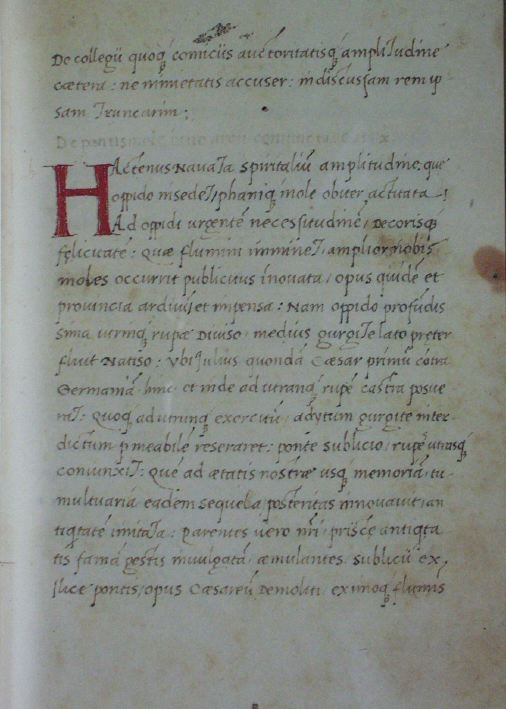 De collegii quoq̃ comiciis auctoritatisq̃ amplitudine
cætera: ne minuetatis accuser: indiscussam rem ip
sam truncarim:
De pontis mole
HActenus Navata spiritaliũ amplitudine, que
oppido insedet, phaniq̃ mole obiter actitata:
Ad oppidi urgentẽ necessitudinẽ, Decorisq̃
felicitatẽ: Quæ flumini imminet, amplior nobis
moles occurrit publicitus inovata, opus quidẽ et
provincia ardivũ, et impensa: Nam oppido profũdis
sima utrinq̃ rupæ Diviso, medius gurgite lato preter
fluit Natiso: Ubi Julius quondã Cæsar primũ cõtra
Germaniã, hinc et inde ad utranq̃ rupẽ castra posue
rat: Quoq̃ ad utrunq̃ exercitũ, adytum gurgite inter-
dictum p meabilẽ reseraret: ponte sublicio, rupẽ utrasq̃
coniunxit: Que ad ætatis nostræ usq̃ memoriã, tu-
multuaria eadem sequela, posteritas innovavit, an
tiq̃tatẽ imitata: parentes vero nr̃i, priscẽ antiq̃ta
tis fama gestis invulgata, æmulantes, sublicũ ex
pontis, opus Cæsareũ Demoliti, ex imoq̃ fluminis